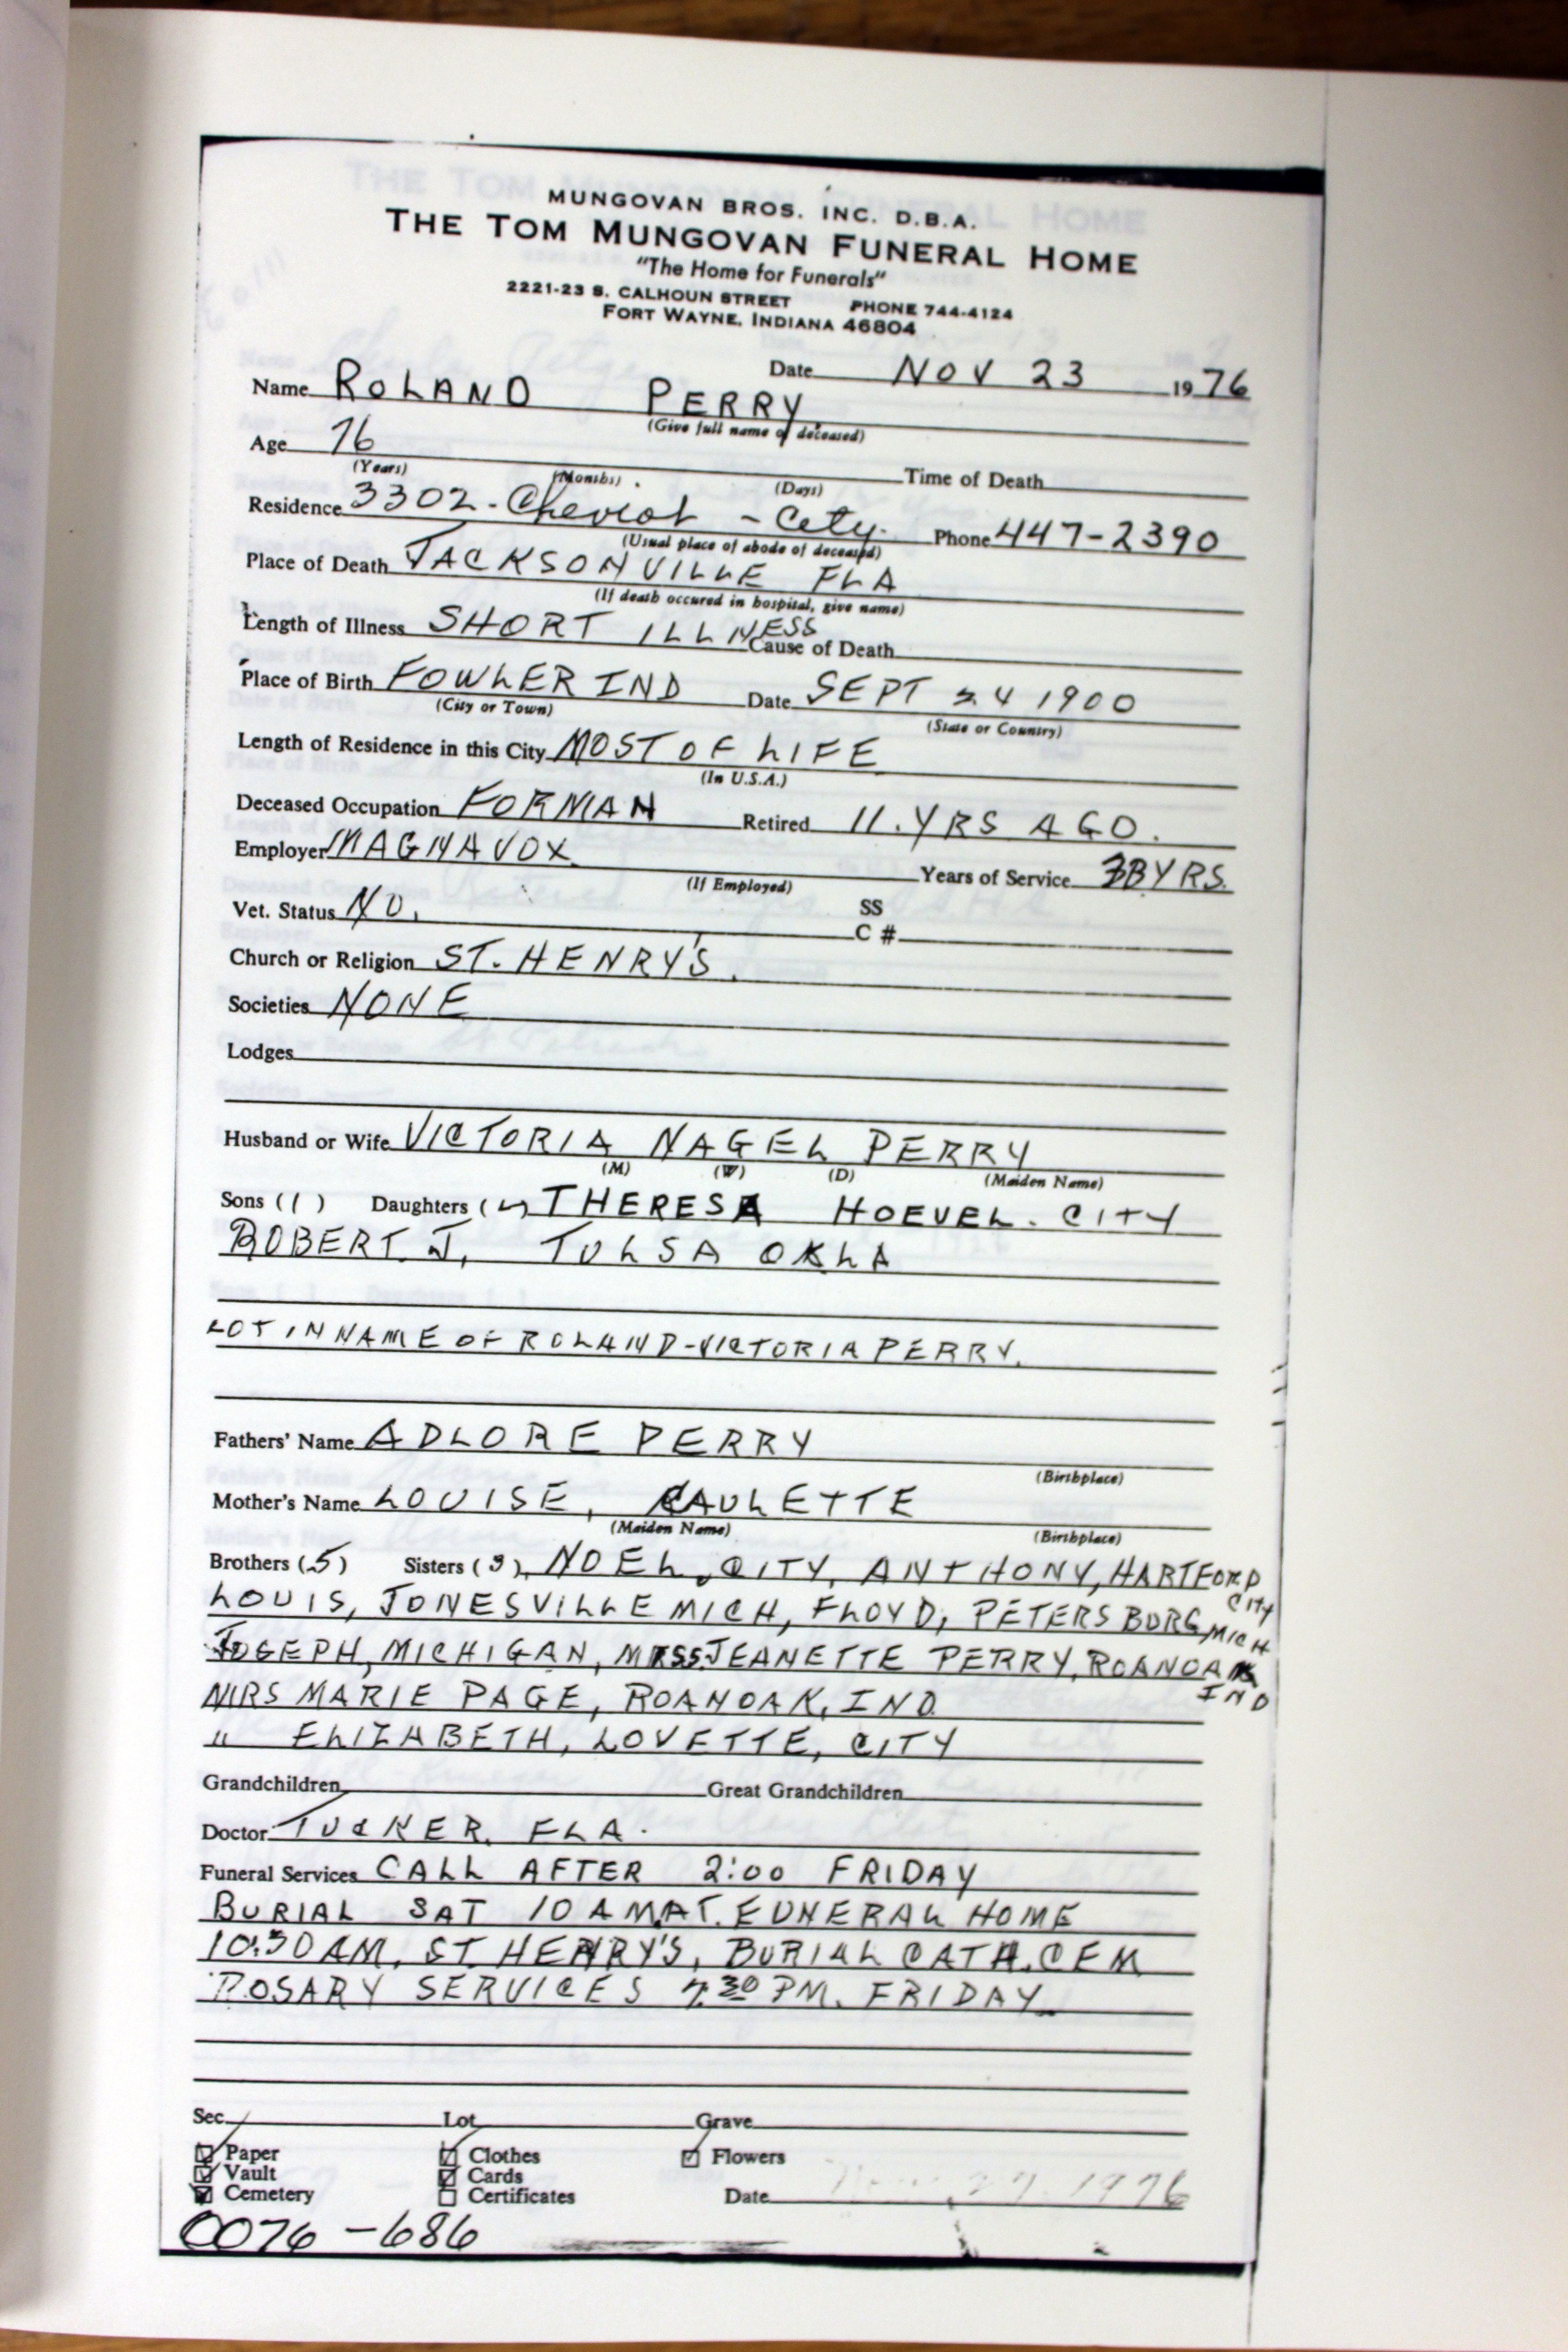 MUNGOVAN BROS. INC. D.B.A.
THE TOM MUNGOVAN FUNERAL HOME
"The Home for Funerals"
2221-23 S. CALHOUN STREET PHONE 744-4124
FORT WAYNE, INDIANA 46804
Date NOV 23 1976
Name ROLAND PERRY
(Give full name of deceased)
Age 76
(Years) (Months) (Days) Time of Death
Residence 3302 - Cheviot - City. Phone 447-2390
(Usual place of abode of deceased)
Place of Death JACKSONVILLE FLA
(If death occured in hospital, give name)
Length of Illness SHORT ILLNESS Cause of Death
Place of Birth FOWLER IND Date SEPT 24 1900
(City or Town) (State or Country)
Length of Residence in this City MOST OF LIFE
(In U.S.A.)
Deceased Occupation FORMAN Retired 11. YRS AGO.
Employer MAGNAVOX Years of Service YRS.
(If Employed)
Vet. Status NO. SS
C #
Church or Religion ST. HENRY'S.
Societies NONE
Lodges
Husband or Wife VICTORIA NAGEL PERRY
(M) (W) (D) (Maiden Name)
Sons (1) Daughters ( ) THERESA HOEVEL. CITY
ROBERT J, TULSA OKLA
LOT IN NAME OF ROLAND-VICTORIA PERRY.
Fathers' Name ADLORE PERRY
(Birthplace)
Mother's Name LOUISE,
(Maiden Name) (Birthplace)
Brothers (5) Sisters (3), NOEL, CITY, ANTHONY, HARTFORD CITY
LOUIS, JONESVILLE MICH, FLOYD, PETERSBURG, MICH
JOSEPH, MICHIGAN, MISS JEANETTE PERRY, ROANOAK IND
MRS MARIE PAGE, ROANOAK, IND
" ELIZABETH, LOVETTE, CITY
Grandchildren Great Grandchildren
Doctor TUCKER, FLA.
Funeral Services CALL AFTER 2:00 FRIDAY
BURIAL SAT 10 AM AT. FUNERAL HOME
10:30 AM, ST. HENRY'S, BURIAL CATH. CEM
ROSARY SERVICES 7:30 PM. FRIDAY
Sec. Lot Grave
Paper Clothes Flowers
Vault Cards
Cemetery Certificates Date 27, 1976
0076-686